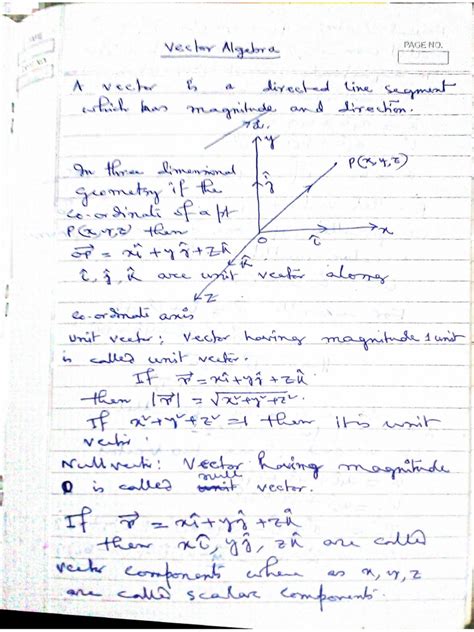 Vector Algebra
PAGE NO.
A vector is a directed line segment
which has magnitude and direction.
In three dimensional
geometry if the
co-ordinate of a pt
P(x,y,z) then
OP⃗ = xî + yĵ + zk̂
î, ĵ, k̂ are unit vector along
co-ordinate axis
y
P(x,y,z)
ĵ
x
O
î
k̂
z
Unit vector: Vector having magnitude 1 unit
is called unit vector.
If r⃗ = xî + yĵ + zk̂
then |r⃗| = √x²+y²+z².
If x²+y²+z² = 1 then it is unit
vector.
Null vector: Vector having magnitude
0 is called null vector.
If r⃗ = xî + yĵ + zk̂
then xî, yĵ, zk̂ are called
vector components where as x, y, z
are called scalar components.